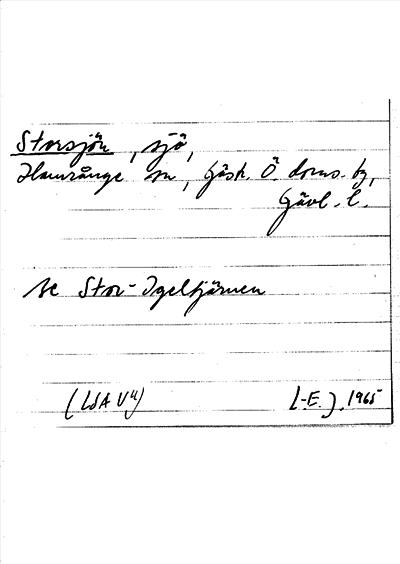 Storsjön, sjö,
Hamrånge sn, Gästr. Ö. doms. by,
Gävl. l.
se Stor-Igeltjärnen
(LSA V4) [-E.], 1965